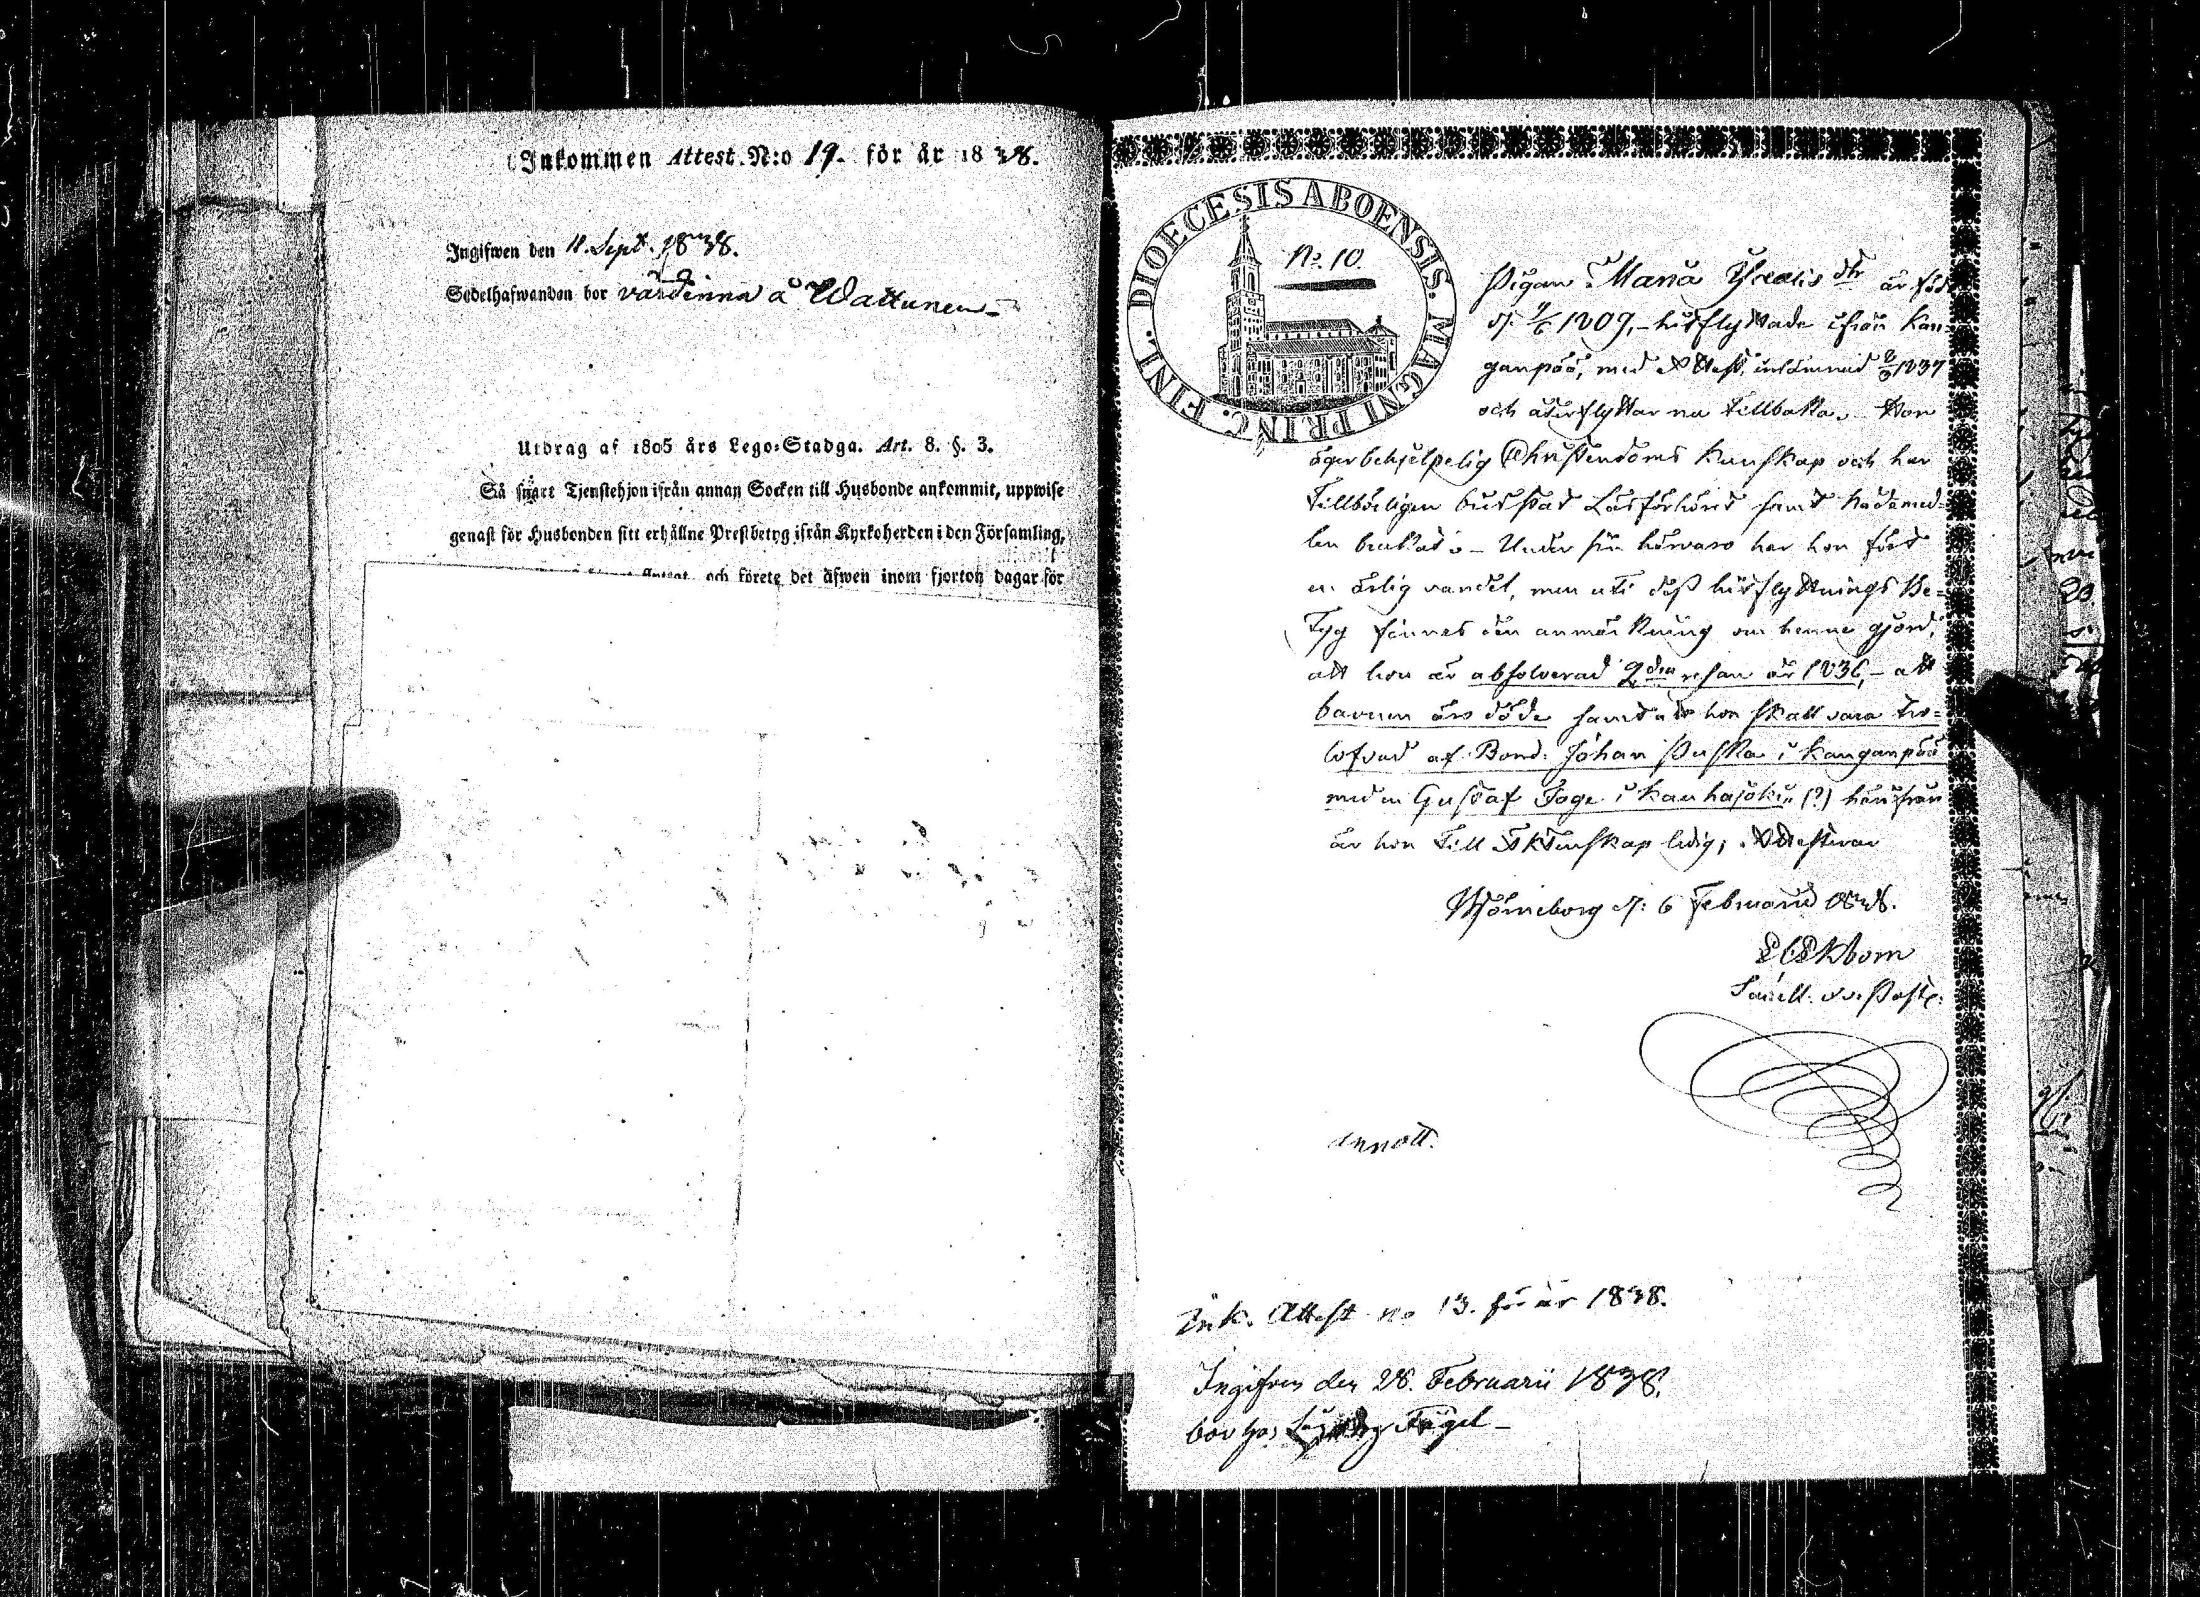 Inkommen Attest. N:o 19. för år 1838.
Ingifwen den 11. Sept. 1838.
Sedelhafwanden bor värdinna å Wattunen
Utdrag af 1805 års Lego-Stadga. Art. 8. §. 3.
Så snart Tjenstehjon ifrån annan Socken till Husbonde ankommit, uppwise
genast för Husbonden sitt erhållne Prestbetyg ifrån Kyrkoherden i den Församling,
och förete det äfwen inom fjorton dagar för
DIOECESIS ABOENSIS. MAGNI PRINC. FINL.
No. 10.
Pigan Maria dtr är född
d: 1809, hitflyttade ifrån Kan-
ganpää, med Attest, inlämnad 1837
och återflyttar nu tillbaka. Hon
äger behjelpelig Christendoms kunskap och har
tillbörligen bevistat Läsförhören samt Nådemed-
len brukat. Under sin härvaro har hon fört
en ärlig vandel, men uti dess hitflyttnings Be-
tyg finnes den anmärkning om henne gjord,
att hon är absolverad 2dra resan år 1836, att
barnen äro döde samt att hon skall vara tro-
lofvad af Bond. Johan Puska i Kanganpää
med en Gustaf i Kauhajoki (?) härifrån
är hon till Äktenskap ledig; Attesterar
Björneborg d: 6 Februarii 1838.
annott.
Ink. Attest no 13. för år 1838.
Ingifven den 28. Februarii 1838.
bor hos Fågel